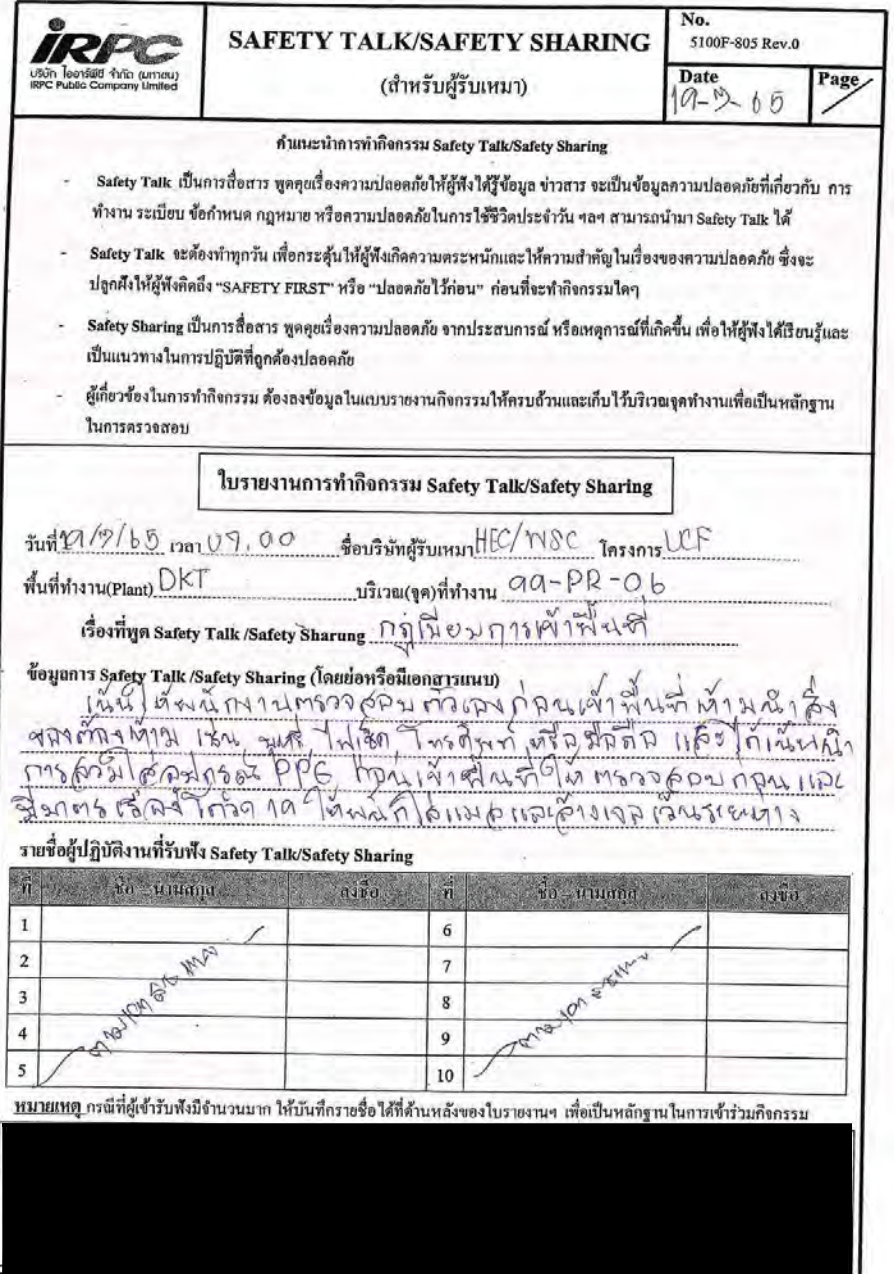 iRPC
บริษัท ไออาร์พีซี จำกัด (มหาชน)
IRPC Public Company Limited
SAFETY TALK/SAFETY SHARING
(สำหรับผู้รับเหมา)
No.
5100F-805 Rev.0
Date
Page
คำแนะนำการทำกิจกรรม Safety Talk/Safety Sharing
- Safety Talk เป็นการสื่อสาร พูดคุยเรื่องความปลอดภัยให้ผู้ฟังได้รู้ข้อมูล ข่าวสาร จะเป็นข้อมูลความปลอดภัยที่เกี่ยวกับ การ
ทำงาน ระเบียบ ข้อกำหนด กฎหมาย หรือความปลอดภัยในการใช้ชีวิตประจำวัน ฯลฯ สามารถนำมา Safety Talk ได้
- Safety Talk จะต้องทำทุกวัน เพื่อกระตุ้นให้ผู้ฟังเกิดความตระหนักและให้ความสำคัญในเรื่องของความปลอดภัย ซึ่งจะ
ปลูกฝังให้ผู้ฟังคิดถึง “SAFETY FIRST” หรือ “ปลอดภัยไว้ก่อน” ก่อนที่จะทำกิจกรรมใดๆ
- Safety Sharing เป็นการสื่อสาร พูดคุยเรื่องความปลอดภัย จากประสบการณ์ หรือเหตุการณ์ที่เกิดขึ้น เพื่อให้ผู้ฟังได้เรียนรู้และ
เป็นแนวทางในการปฏิบัติที่ถูกต้องปลอดภัย
- ผู้เกี่ยวข้องในการทำกิจกรรม ต้องลงข้อมูลในแบบรายงานกิจกรรมให้ครบถ้วนและเก็บไว้บริเวณจุดทำงานเพื่อเป็นหลักฐาน
ในการตรวจสอบ
ใบรายงานการทำกิจกรรม Safety Talk/Safety Sharing
วันที่ เวลา 07.00 ชื่อบริษัทผู้รับเหมา HEC/WSC โครงการ UCF
พื้นที่ทำงาน(Plant) DKT บริเวณ(จุด)ที่ทำงาน 99-PR-06
เรื่องที่พูด Safety Talk /Safety Sharung การเข้าพื้นที่
ข้อมูลการ Safety Talk /Safety Sharing (โดยย่อหรือมีเอกสารแนบ)
เน้นให้พนักงานตรวจสอบตัวเองก่อนเข้าพื้นที่ห้ามนำสิ่ง
ของต้องห้าม เช่น บุหรี่ ไฟเช็ค โทรศัพท์ และได้เน้น
การสวมใส่อุปกรณ์ PPE ก่อนเข้าพื้นที่ให้ตรวจสอบก่อนและ
เรื่องโควิด 19 และล้างเจลเว้นระยะห่าง
รายชื่อผู้ปฏิบัติงานที่รับฟัง Safety Talk/Safety Sharing
ที่ ชื่อ – นามสกุล ลงชื่อ ที่ ชื่อ – นามสกุล ลงชื่อ
1 6
2 7
3 8
4 9
5 10
หมายเหตุ กรณีที่ผู้เข้ารับฟังมีจำนวนมาก ให้บันทึกรายชื่อได้ที่ด้านหลังของใบรายงานฯ เพื่อเป็นหลักฐานในการเข้าร่วมกิจกรรม